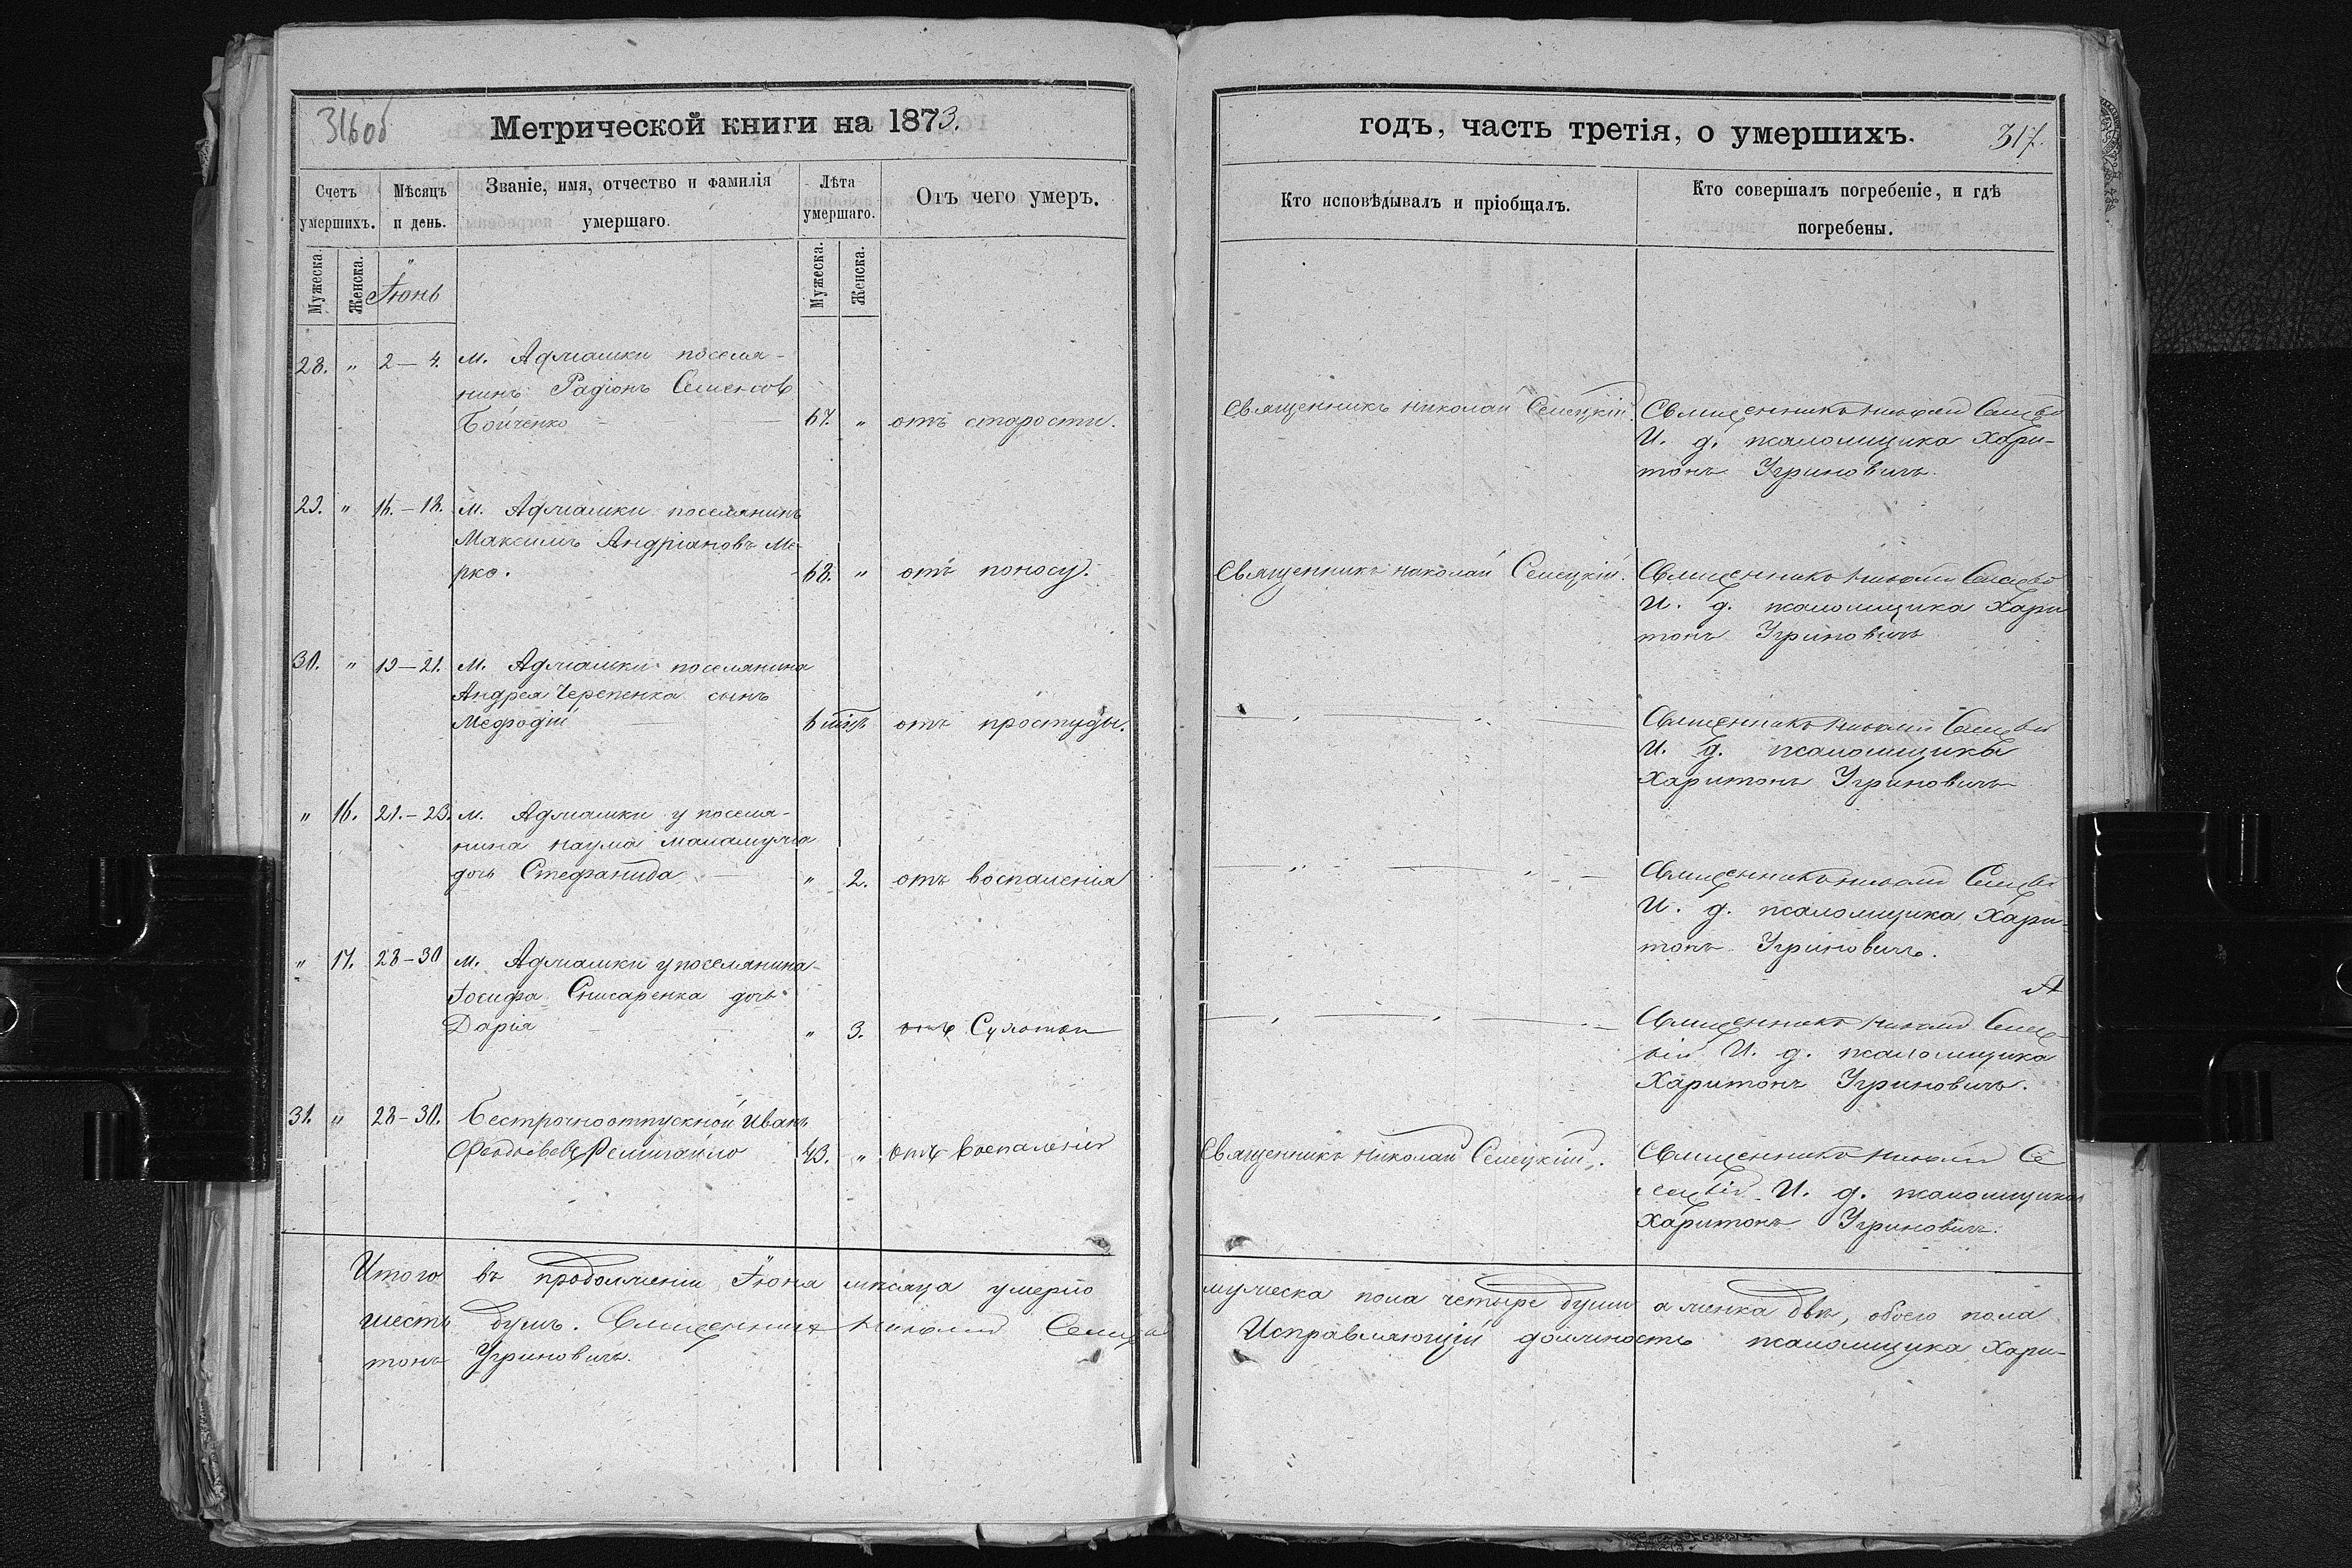 316об
Метрической книги на 1873.
Счетъ умершихъ.
Мѣсяцъ и день.
Званіе, имя, отчество и фамилія умершаго.
Лѣта умершаго.
Отъ чего умеръ.
Мужеска.
Женска.
Іюнь
Мужеска.
Женска.
28. " 2–4. м. Адмашки поселя-
нинъ Радіонъ Семенов
Бойченко 67. " отъ старости.
29. " 16.–18. м. Адмашки поселянинъ
Максимъ Андріановъ Ме-
рко. 68. " отъ поносу.
30. " 19–21. м. Адмашки поселянина
Андрея Черепенка сынъ
Мефодій 6 отъ простуды.
" 16. 21.–23. м. Адмашки у поселя-
нина Наума
дочь Стефанида " 2. отъ воспаленія
" 17. 28–30 м. Адмашки у поселянина
Іосифа Снисаренка дочь
Дарія " 3. отъ Сухотки
31. " 28–30. Безсрочноотпускной Иванъ
43. " отъ Воспаленія
Итого въ продолженіи Іюня мѣсяца умерло
шесть душъ. Священникъ Николай
тонъ Угриновичъ.
годъ, часть третія, о умершихъ.
317.
Кто исповѣдывалъ и пріобщалъ.
Кто совершалъ погребеніе, и гдѣ погребены.
Священникъ Николай Семецкій. Священникъ Николай Семецкій
И. д. псаломщика Хари-
тонъ Угриновичъ.
Священникъ Николай Семецкій. Священникъ Николай Семецкій
И. д. псаломщика Хари
тонъ Угриновичъ
Священникъ Николай Семецкій
И. д. псаломщика
Харитонъ Угриновичъ
Священникъ Николай Семецкій
И. д. псаломщика Хари-
тонъ Угриновичъ.
Священникъ Николай Семец
кій И. д. псаломщика
Харитонъ Угриновичъ.
Священникъ Николай Семецкій. Священникъ Николай Се
мецкій И. д. псаломщика
Харитонъ Угриновичъ.
мужеска пола четыре души а женка двѣ, обоего пола
Исправляющій должность псаломщика Хари-